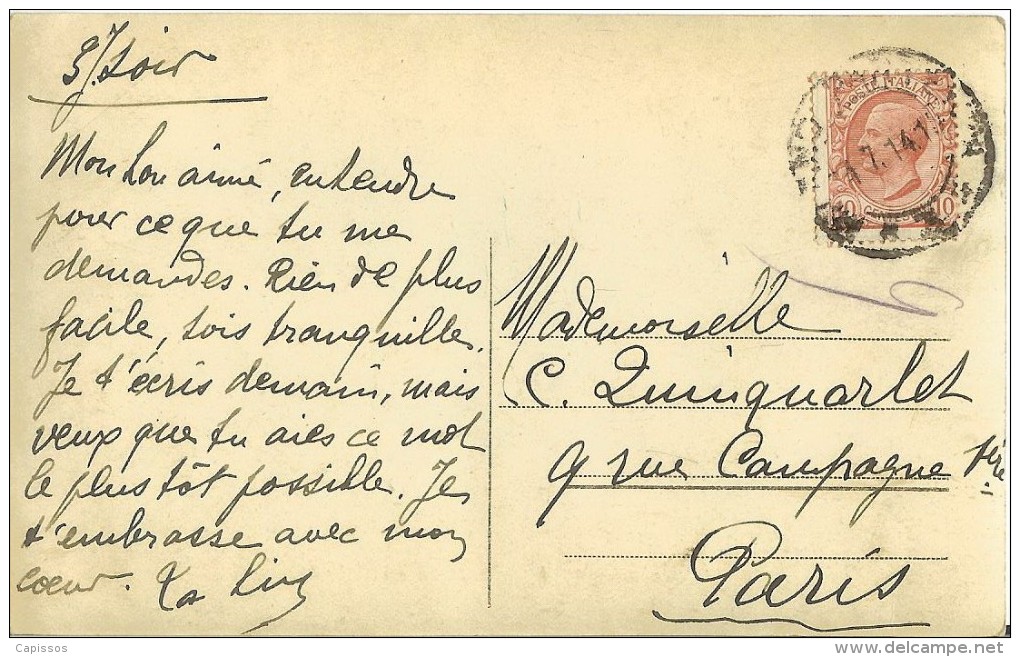 3/. Soir
Mon bon aimé, entendre
pour ce que tu me
demandes. Rien de plus
facile, sois tranquille.
Je t'écris demain, mais
veux que tu aies ce mot
le plus tôt possible. Je
t'embrasse avec mon
coeur. Ta
POSTE ITALIANE
7.14
10 10
Mademoiselle
C. Quinquarlet
9 rue Campagne 1ère
Paris
Capissos
www.delcampe.net